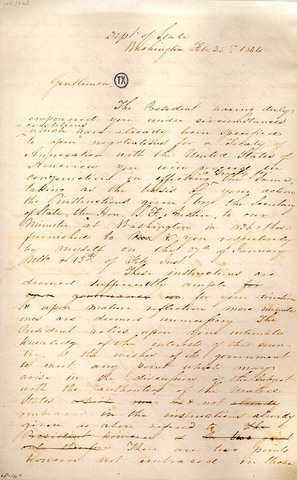 Dept of State
Washington Feby 25th 1844
Gentlemen,
TX
The President having duly
empowered you under circumstances
conditions
which have already been specified
to open negotiations for a Treaty of
Annexation with the United States of
America you will proceed in
conjunction in effecting a Treaty
taking as the basis of your action
the instructions given by the Secretary
of State, the Hon. to our
Minister at Washington in 1836 & those
furnished to you respectively
by myself on the of January
and 15th of Feby Inst.
These instructions are
deemed sufficiently ample for
for your direction
& upon mature reflection more minute
ones are deemed unnecessary. The
President relies upon your intimate
knowledge of the interests of this coun
try & the wishes of its government
to meet any point which may
arise in the discussion of the subject
with the authorities of the United
States & not
embraced in the instructions already
given as above referred to The
President however
There are two points
however not embraced in those